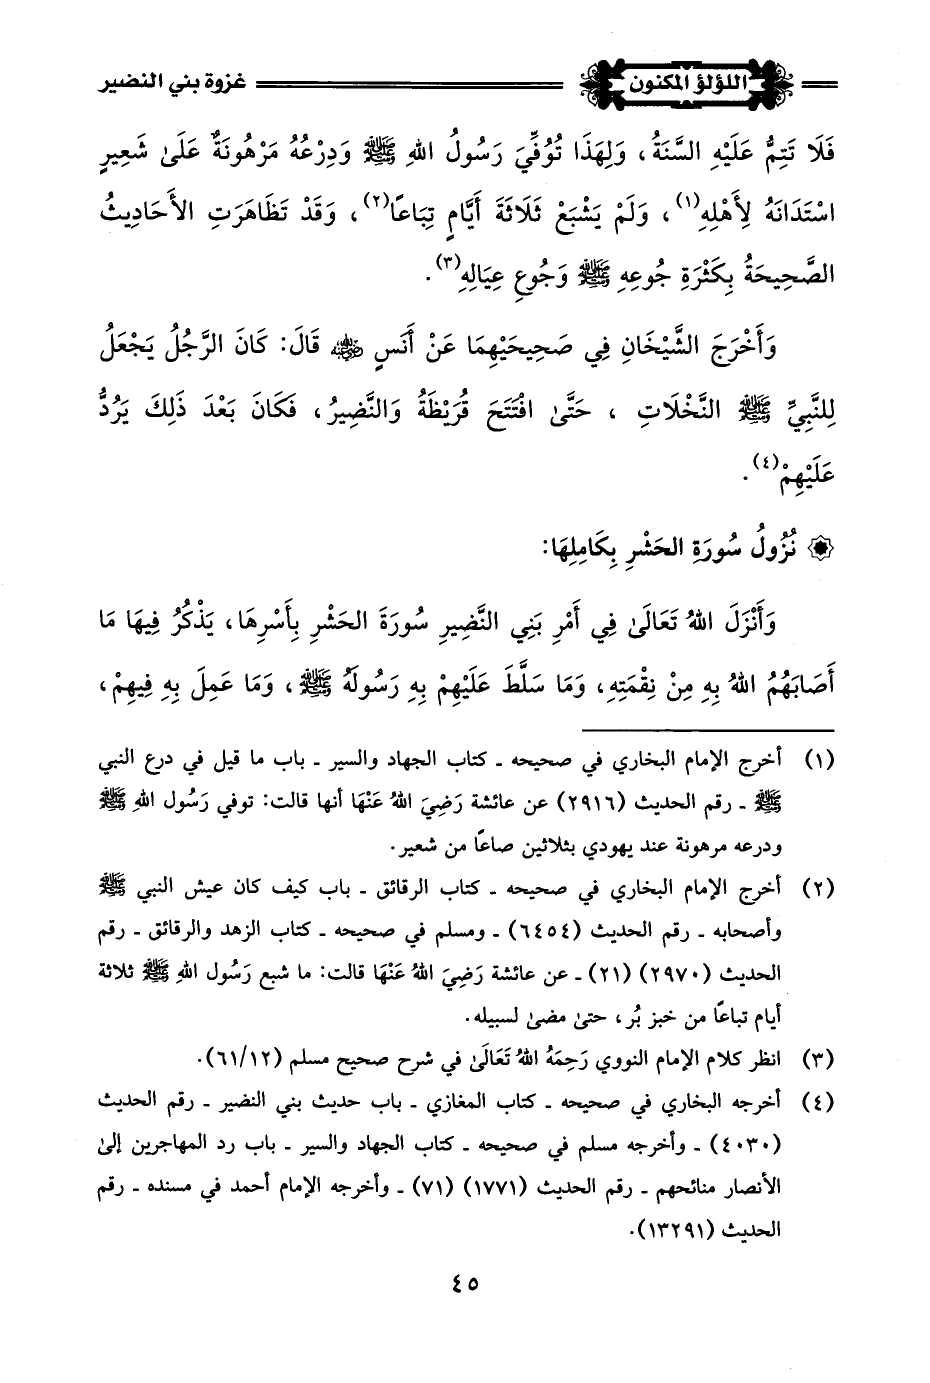 اللؤلؤ المكنون
غزوة بني النضير
فَلَا تَتِمُّ عَلَيْهِ السَّنَةُ، وَلِهَذَا تُوُفِّيَ رَسُولُ اللهِ ﷺ وَدِرْعُهُ مَرْهُونَةٌ عَلَىٰ شَعِيرٍ
اسْتَدَانَهُ لِأَهْلِهِ(١)، وَلَمْ يَشْبَعْ ثَلَاثَةَ أَيَّامٍ تِبَاعًا(٢)، وَقَدْ تَظَاهَرَتِ الأَحَادِيثُ
الصَّحِيحَةُ بِكَثْرَةِ جُوعِهِ ﷺ وَجُوعِ عِيَالِهِ(٣).
وَأَخْرَجَ الشَّيْخَانِ فِي صَحِيحَيْهِمَا عَنْ أَنَسٍ رضي الله عنه قَالَ: كَانَ الرَّجُلُ يَجْعَلُ
لِلنَّبِيِّ ﷺ النَّخْلَاتِ ، حَتَّىٰ افْتَتَحَ قُرَيْظَةُ وَالنَّضِيرُ، فَكَانَ بَعْدَ ذَلِكَ يَرُدُّ
عَلَيْهِمْ(٤).
نُزُولُ سُورَةِ الحَشْرِ بِكَامِلِهَا:
وَأَنْزَلَ اللهُ تَعَالَىٰ فِي أَمْرِ بَنِي النَّضِيرِ سُورَةَ الحَشْرِ بِأَسْرِهَا، يَذْكُرُ فِيهَا مَا
أَصَابَهُمُ اللهُ بِهِ مِنْ نِقْمَتِهِ، وَمَا سَلَّطَ عَلَيْهِمْ بِهِ رَسُولَهُ ﷺ، وَمَا عَمِلَ بِهِ فِيهِمْ،
(١) أخرج الإمام البخاري في صحيحه ـ كتاب الجهاد والسير ـ باب ما قيل في درع النبي
ﷺ ـ رقم الحديث (٢٩١٦) عن عائشة رَضِيَ اللهُ عَنْهَا أنها قالت: توفي رَسُول اللهِ ﷺ
ودرعه مرهونة عند يهودي بثلاثين صاعًا من شعير.
(٢) أخرج الإمام البخاري في صحيحه ـ كتاب الرقائق ـ باب كيف كان عيش النبي ﷺ
وأصحابه ـ رقم الحديث (٦٤٥٤) ـ ومسلم في صحيحه ـ كتاب الزهد والرقائق ـ رقم
الحديث (٢٩٧٠) (٢١) ـ عن عائشة رَضِيَ اللهُ عَنْهَا قالت: ما شبع رَسُول اللهِ ﷺ ثلاثة
أيام تباعًا من خبز بُر، حتىٰ مضىٰ لسبيله.
(٣) انظر كلام الإمام النووي رَحِمَهُ اللهُ تَعَالَىٰ في شرح صحيح مسلم (٦١/١٢).
(٤) أخرجه البخاري في صحيحه ـ كتاب المغازي ـ باب حديث بني النضير ـ رقم الحديث
(٤٠٣٠) ـ وأخرجه مسلم في صحيحه ـ كتاب الجهاد والسير ـ باب رد المهاجرين إلىٰ
الأنصار منائحهم ـ رقم الحديث (١٧٧١) (٧١) ـ وأخرجه الإمام أحمد في مسنده ـ رقم
الحديث (١٣٢٩١).
٤٥